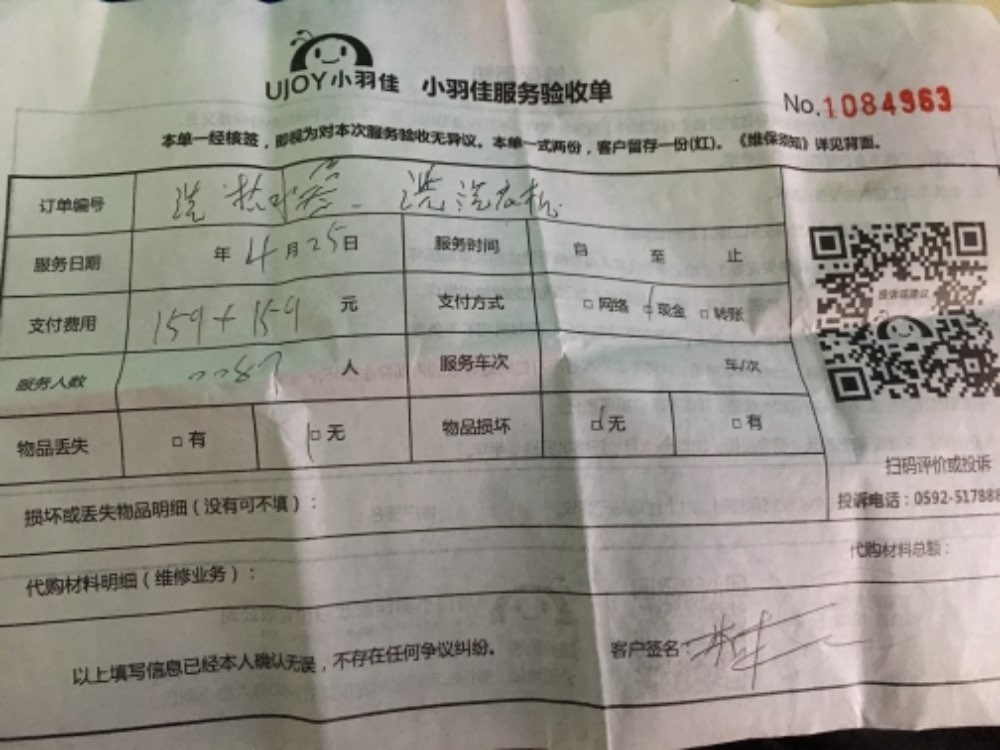 UJOY小羽佳 小羽佳服务验收单
No.1084963
本单一经核签，即视为对本次服务验收无异议。本单一式两份，客户留存一份(红)。《维保须知》详见背面。
订单编号 洗 热水器 洗 洗衣机
服务日期 年 4 月 25 日 服务时间 自 至 止
支付费用 159+159 元 支付方式 □网络 □现金 □转账
投诉或建议
服务人数 人 服务车次 车/次
物品丢失 □有 □无 物品损坏 □无 □有
扫码评价或投诉
损坏或丢失物品明细（没有可不填）：
投诉电话：0592-517888
代购材料总额：
代购材料明细（维修业务）：
以上填写信息已经本人确认无误，不存在任何争议纠纷。
客户签名：